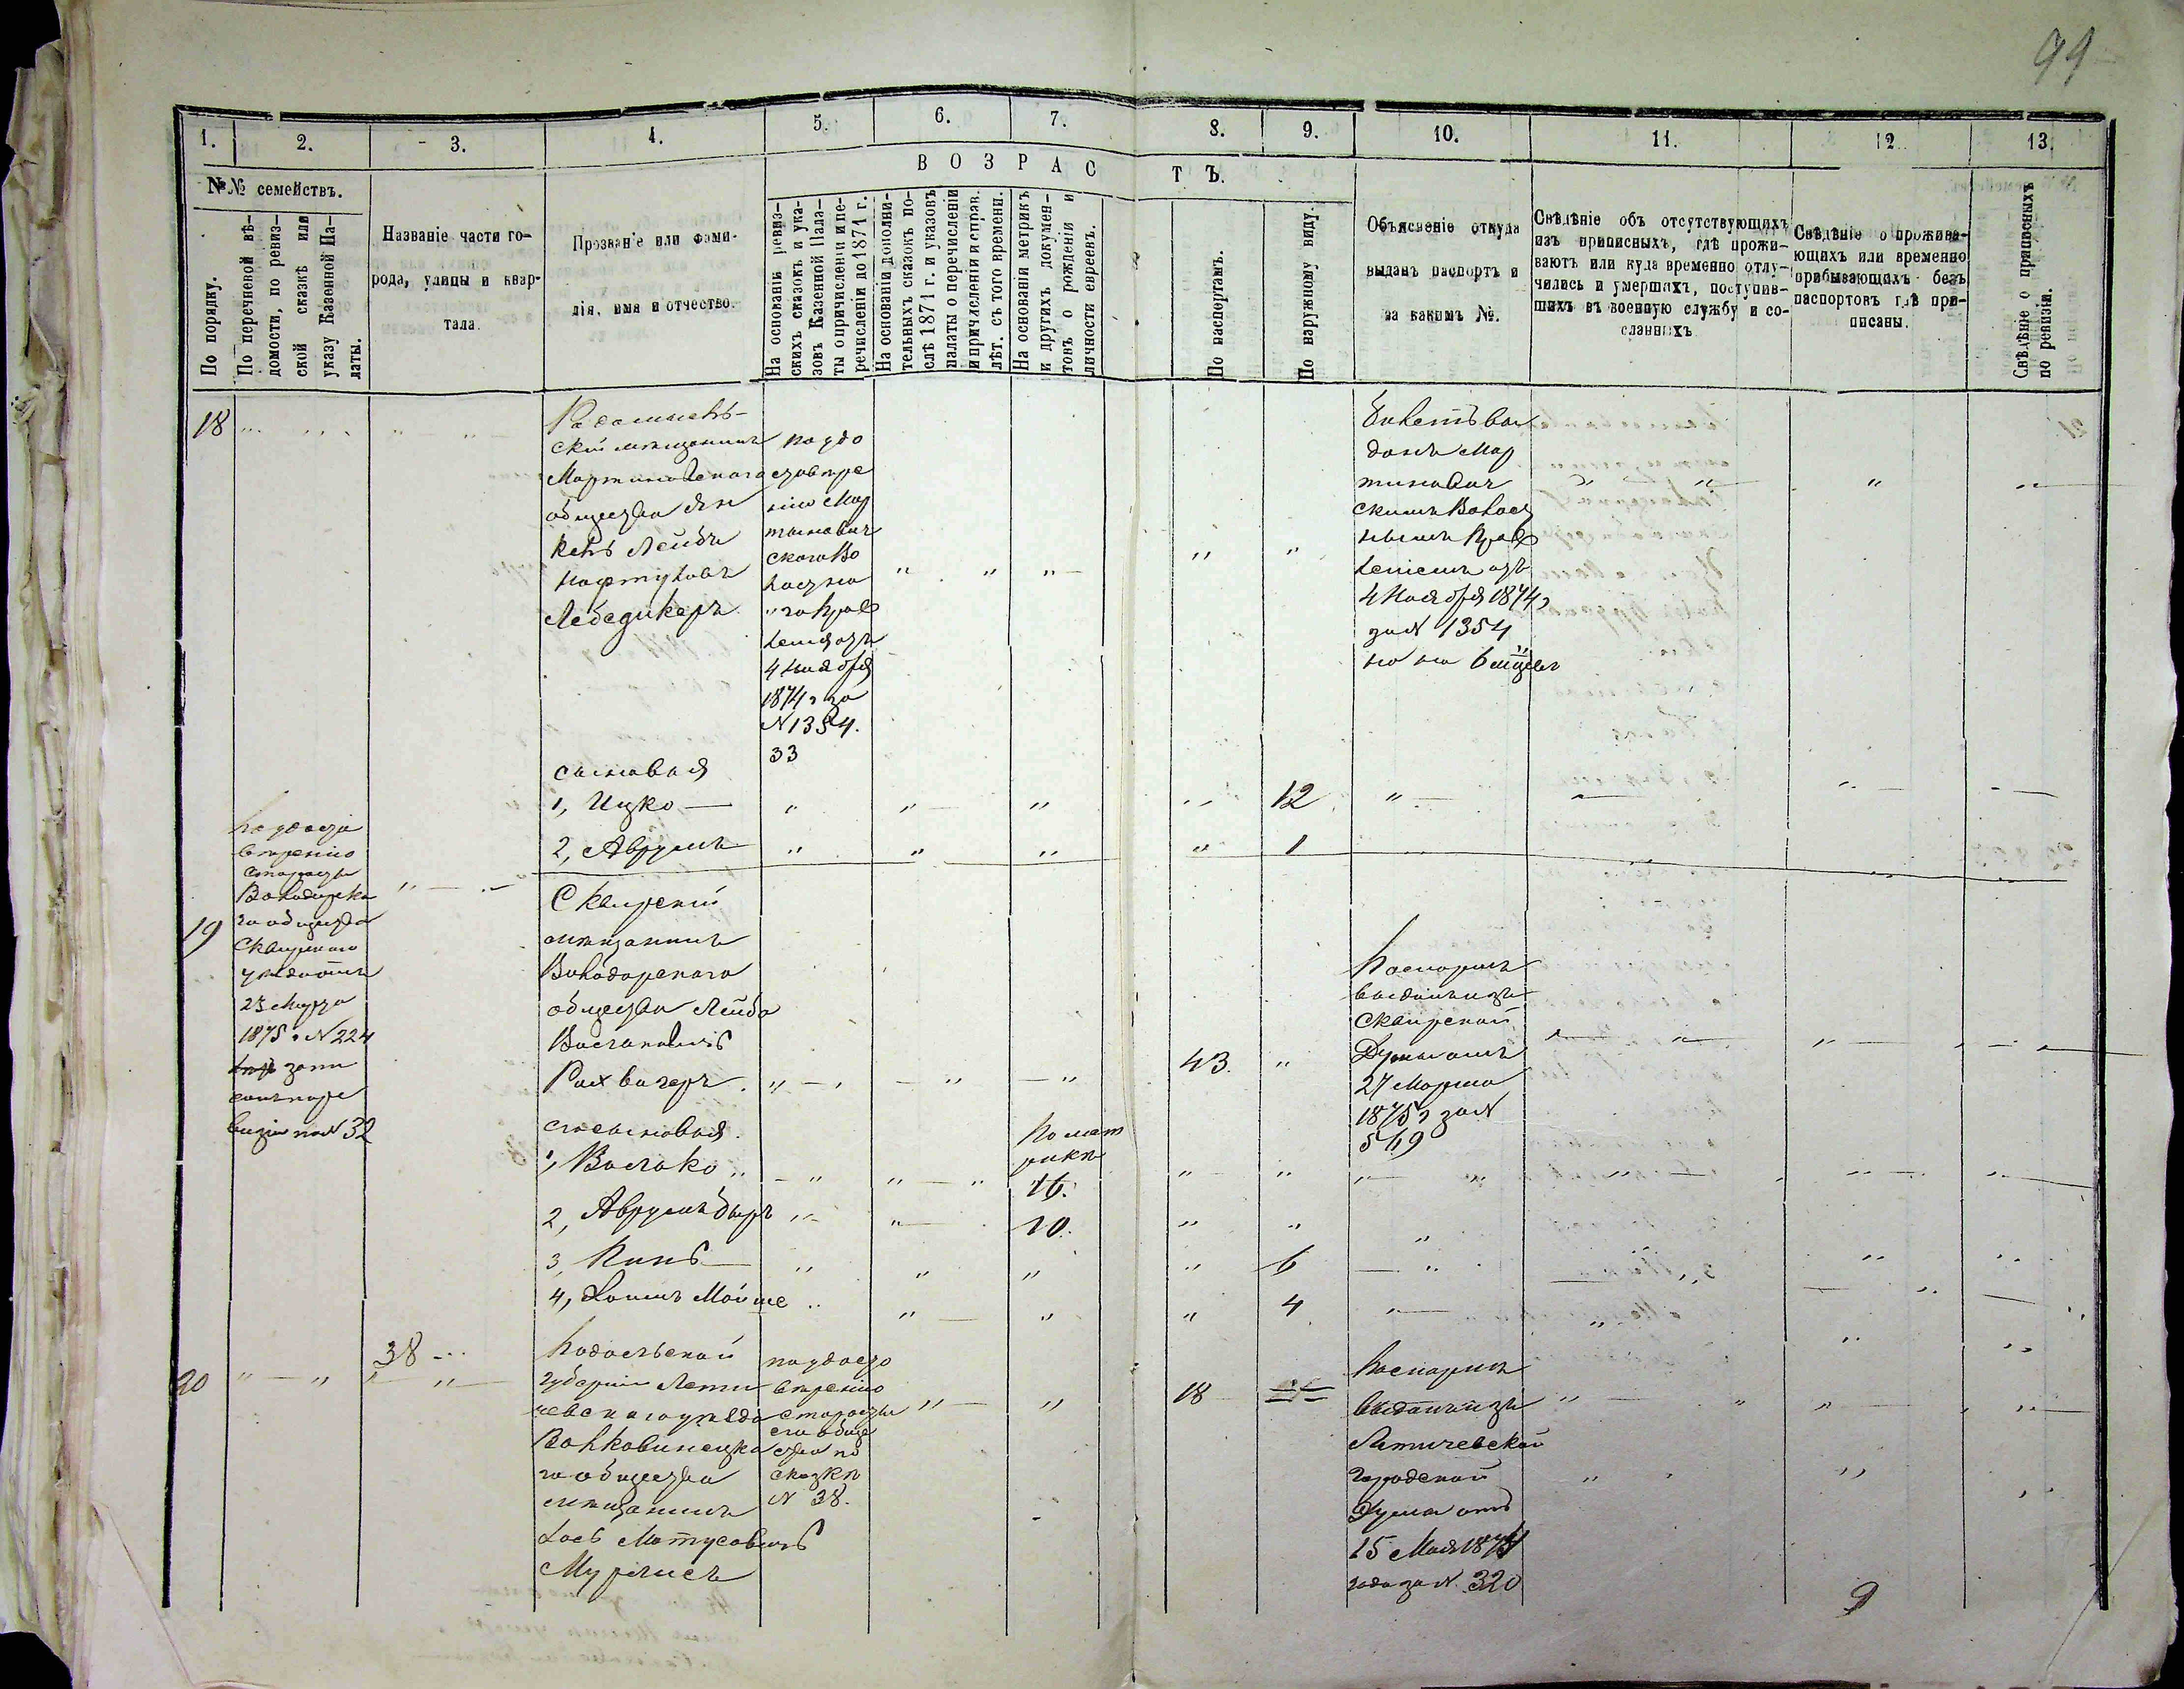 99
1. 2. 3. 4. 5. 6. 7. 8. 9. 10. 11. 12. 13.
№№ семействъ.
В О З Р А С Т Ъ.
По порядку.
По перечневой вѣ-
домости, по ревиз-
ской сказкѣ или
указу Казенной Па-
латы.
Названіе части го-
рода, улицы и квар-
тала.
Прозваніе или фами-
лія, имя и отчество.
На основаніи ревиз-
скихъ сказокъ и ука-
зовъ Казенной Пала-
ты о причисленіи и пе-
речисленіи до 1871 г.
На основаніи дополни-
тельныхъ сказокъ по-
слѣ 1871 г. и указовъ
палаты о перечисленіи
и причисленіи справ.
лѣт. съ того времени.
На основаніи метрикъ
и другихъ докумен-
товъ о рожденіи и
личности евреевъ.
По паспортамъ.
По наружному виду.
Объясненіе откуда
выданъ паспортъ и
за какимъ №.
Свѣдѣніе объ отсутствующихъ
изъ приписныхъ, гдѣ прожи-
ваютъ или куда временно отлу-
чились и умершихъ, поступив-
шихъ въ военную службу и со-
сланныхъ
Свѣдѣніе о прожива-
ющихъ или временно
прибывающихъ безъ
паспортовъ гдѣ при-
писаны.
Свѣдѣніе о приписныхъ
по ревизіи.
18
Радомысль-
скій мѣщанинъ
Мартиновскаго
общества
Лейба
Нафтуловъ
Лебедикеръ
по удо
стовѣре
нію Мар
тынович
скаго Во
лостно
го Прав
ленія отъ
4 Ноября
1874 г за
№ 1354.
33
Билетъ вы
данъ Мар
тинович
скимъ Волост
нымъ Прав
леніемъ отъ
4 Ноября 1874 г
за № 1354
сыновья
1, Ицко 12
2, Аврумъ 1
19
По удосто
вѣренію
старосты
Володарска
го общества
Сквирскаго
уѣзда отъ
23 Марта
1875 г № 224
запи
санъ по ре
визіи под № 32
Сквирскій
мѣщанинъ
Володарскаго
общества Лейба
Васильковичъ
43
Паспортъ
выданъ изъ
Сквирской
Думы отъ
27 Марта
1875 г за №
549
его сыновья
По мет
рикѣ
1, 16.
2, Аврумъ Беръ 10.
3, 6
4, Хаимъ Мойше 4
38
20
Подольской
губерніи Лети
чевскаго уѣзда
Волковинецка
го общества
мѣщанинъ
Іось Матусовичъ
по удосто
вѣренію
старосты
его обще
ства по
сказкѣ
№ 38.
18
Паспортъ
выданъ изъ
Летичевской
городской
Думы отъ
15 Мая 1874
года за №. 320
9